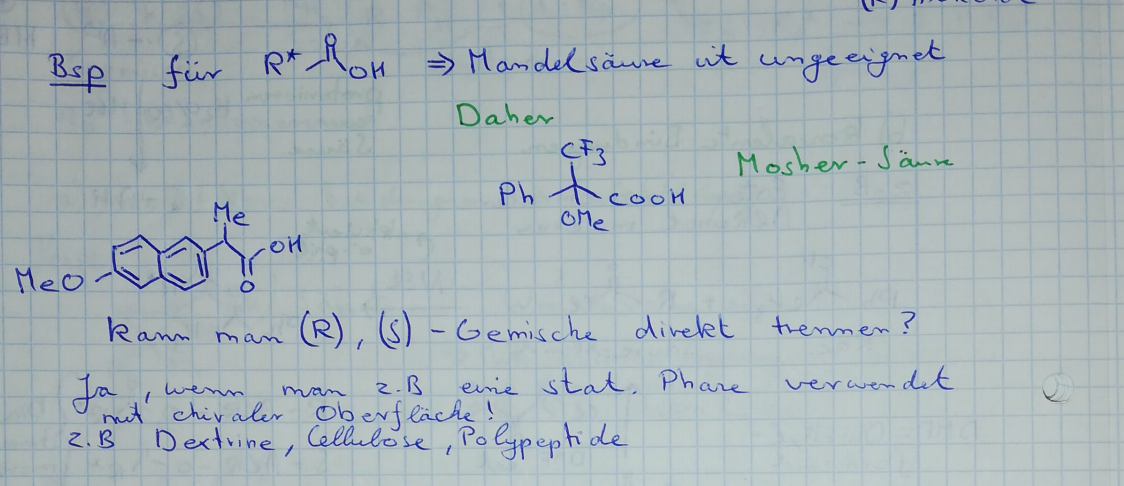 Bsp für R* OH ⇒ Mandelsäure ist ungeeignet
Daher
CF3
Mosher-Säure
Ph COOH
OMe
Me
OH
MeO
O
kann man (R), (S) - Gemische direkt trennen?
Ja, wenn man z.B eine stat. Phase verwendet
mit chiraler Oberfläche!
z.B Dextrine, Cellulose, Polypeptide